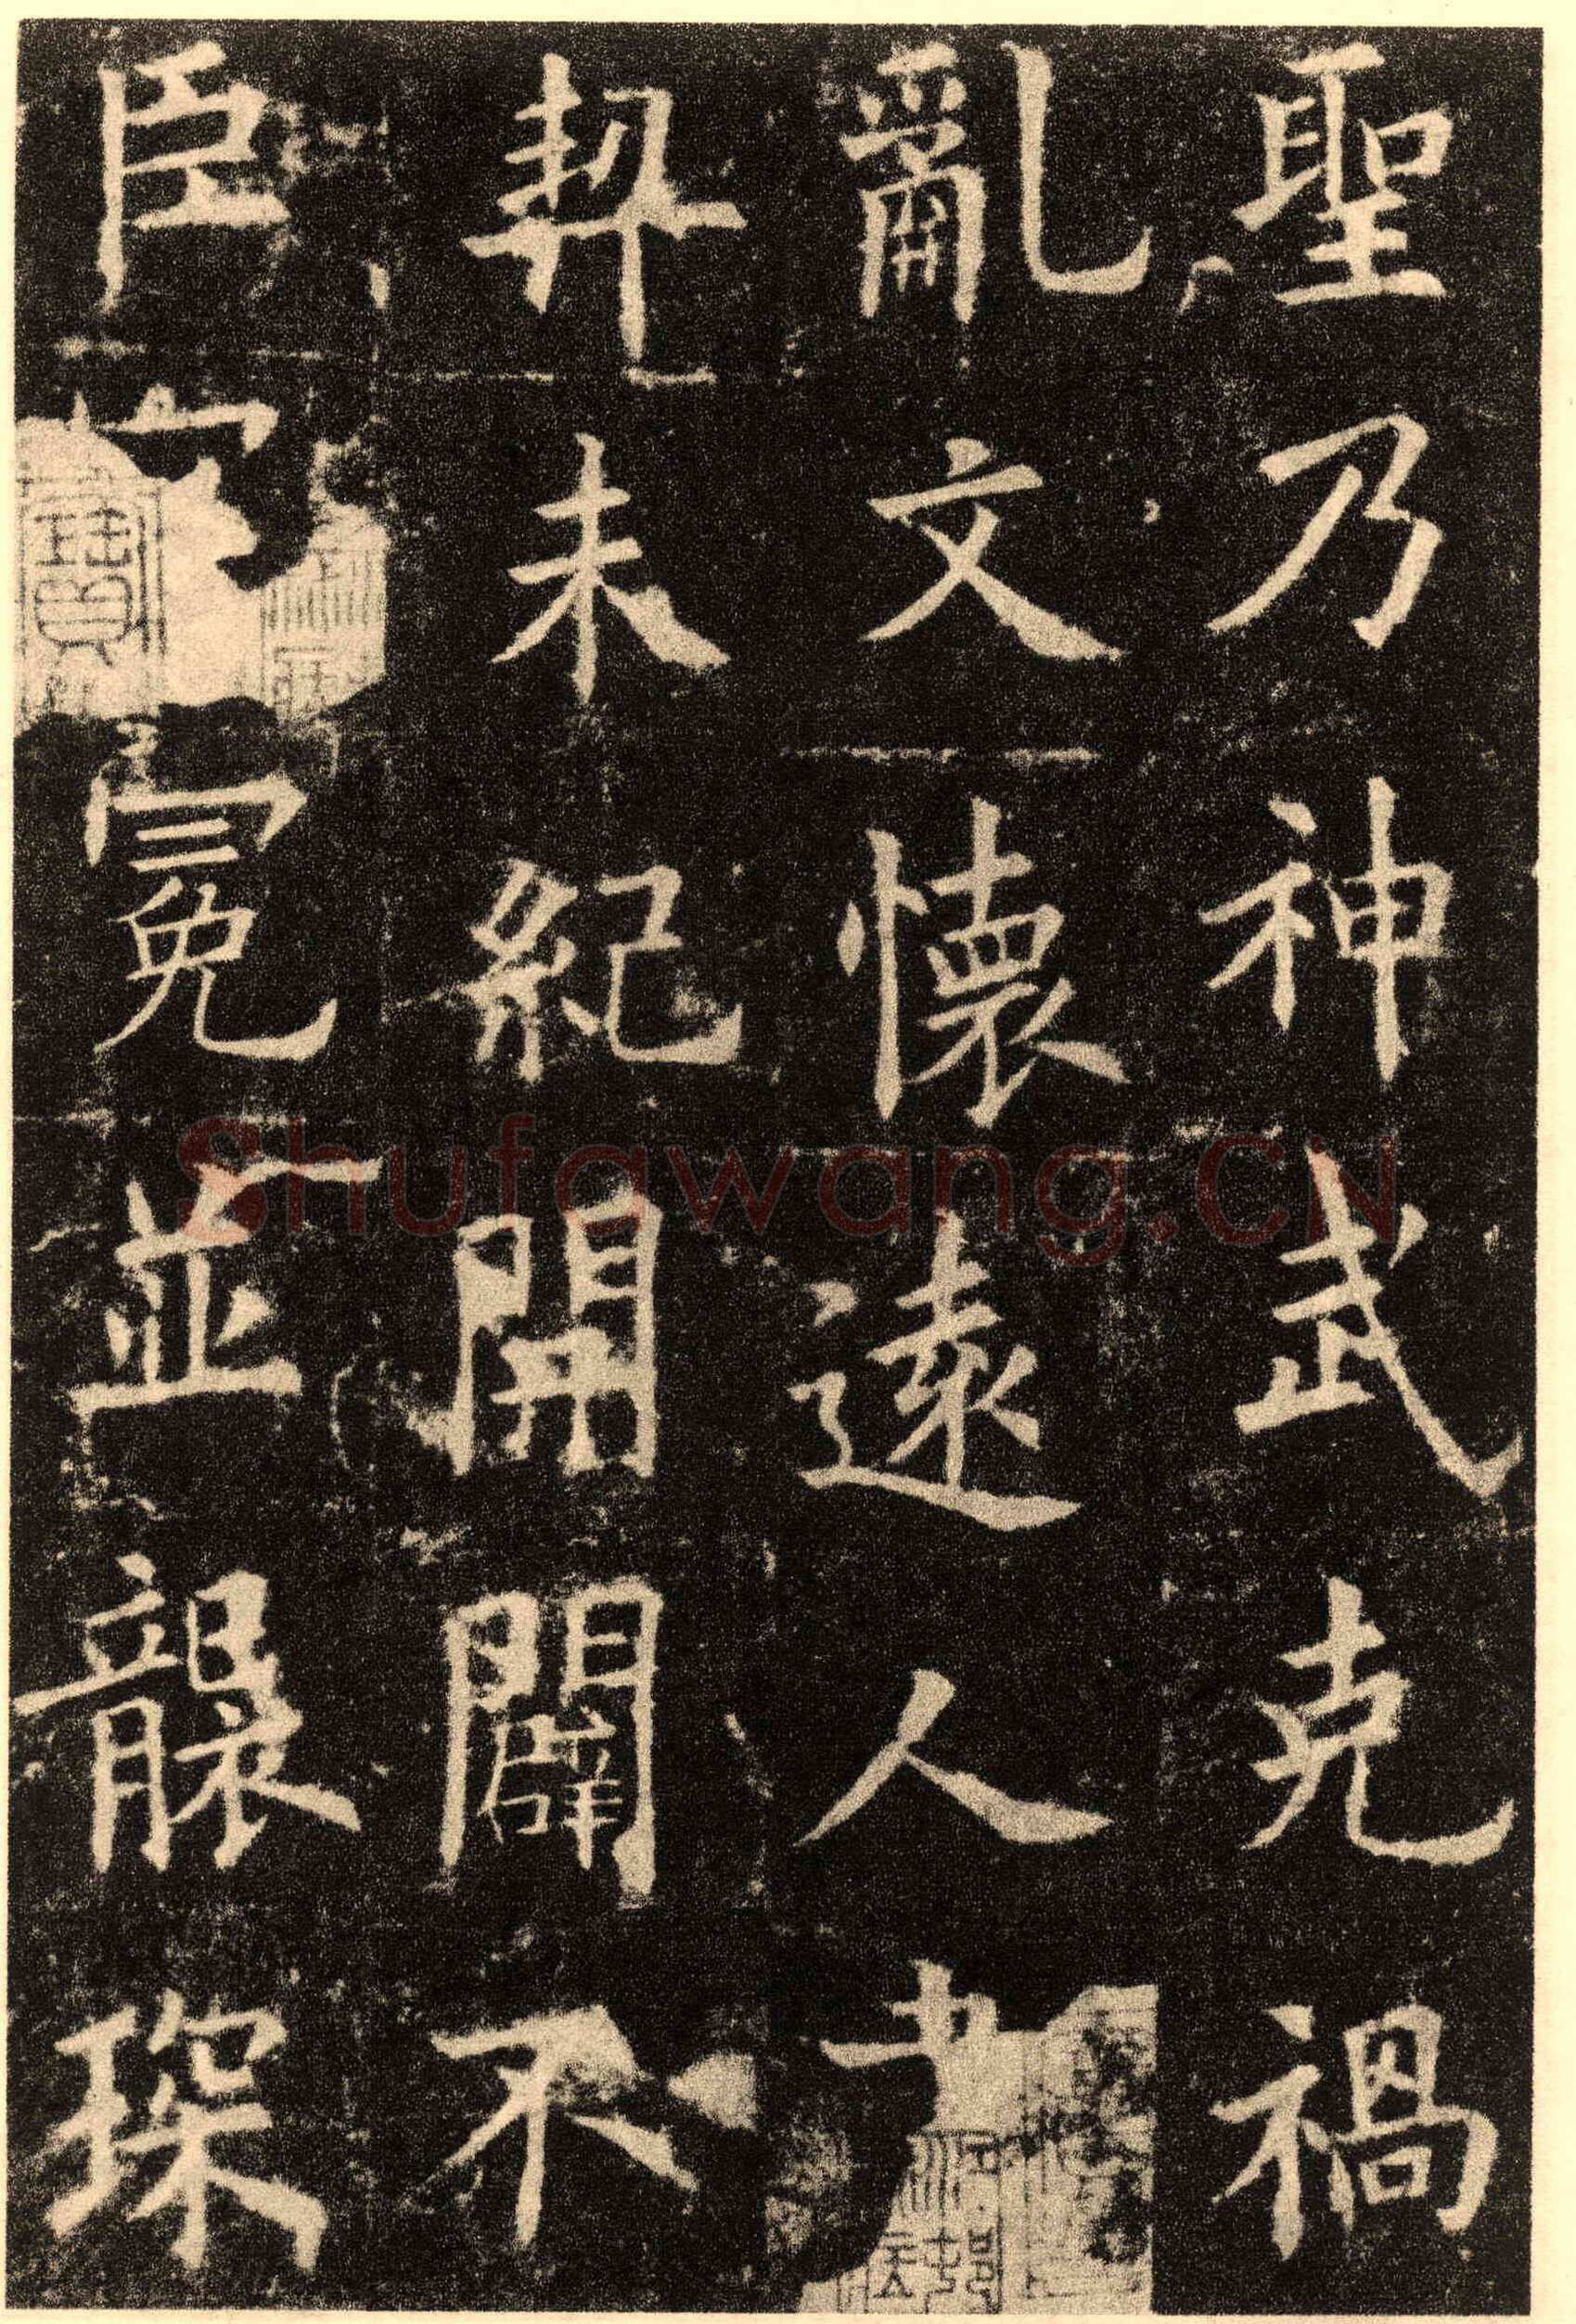 聖乃神武克禍
亂文懷遠人
契未紀開闢不
臣冕並襲琛
Shufawang.CN